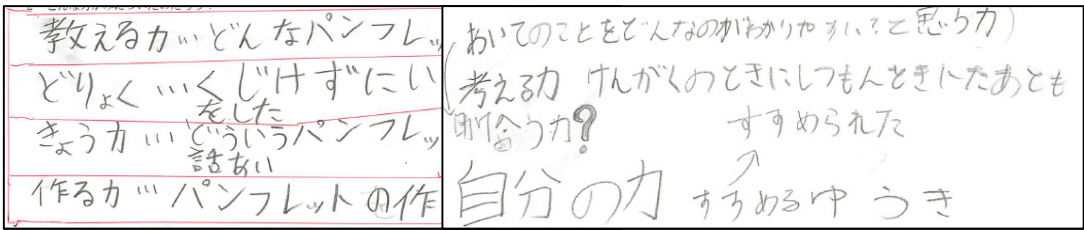 教える力…どんなパンフレッ
どりょく…くじけずにい
をした
きょう力…どういうパンフレッ
話あい
作る力…パンフレットの作
あいてのことをどんなのがわかりやすい?と思う力)
考える力 けんがくのときにしつもんをきいたあとも
合う力?
すすめられた
自分の力 すすめるゆうき